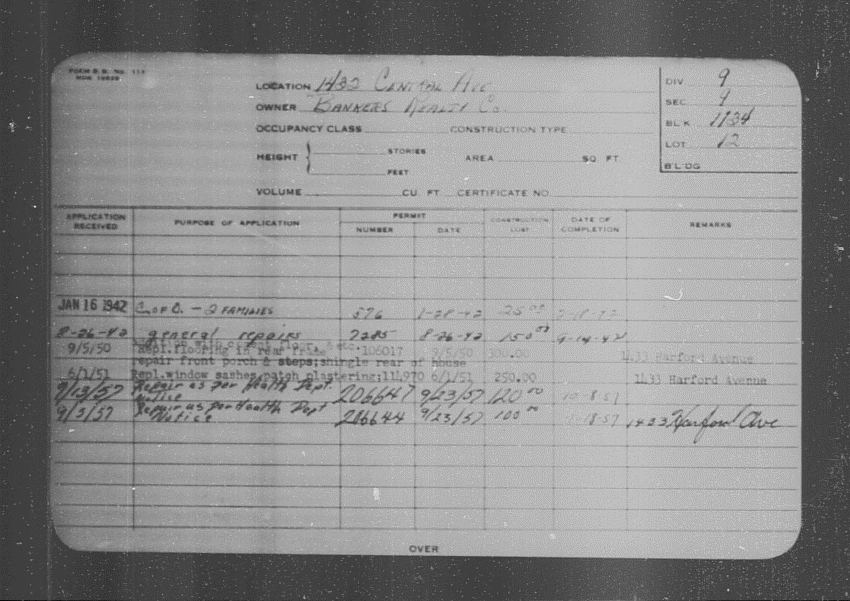 FORM B.B. No. 114
LOCATION 1432 Central Ave
OWNER Bankers Realty Co.
OCCUPANCY CLASS CONSTRUCTION TYPE
HEIGHT STORIES AREA SQ FT.
FEET
VOLUME CU. FT. CERTIFICATE NO.
DIV 9
SEC 4
BLK 1134
LOT 12
B'LDG
APPLICATION RECEIVED PURPOSE OF APPLICATION PERMIT NUMBER DATE CONSTRUCTION COST DATE OF COMPLETION REMARKS
JAN 16 1942 C of O. - 2 FAMILIES 576 1-28-42 25 00
8-26-42 general repairs 7285 8-26-42 150 00 9-14-42
floor, & etc.
9/5/50 Repl.flooring in rear 106017 9/5/50 300.00 1433 Harford Avenue
repair front porch & steps;shingle rear of house
6/1/51 Repl.window sashes;patch plastering; 114970 6/1/51 250.00 1433 Harford Avenue
9/13/57 Repair as per Health Dept. Notice 206647 9/23/57 120 00 10-8-57
9/3/57 Repair as per Health Dept Notice 206644 9/23/57 100 00 1433 Harford Ave
OVER